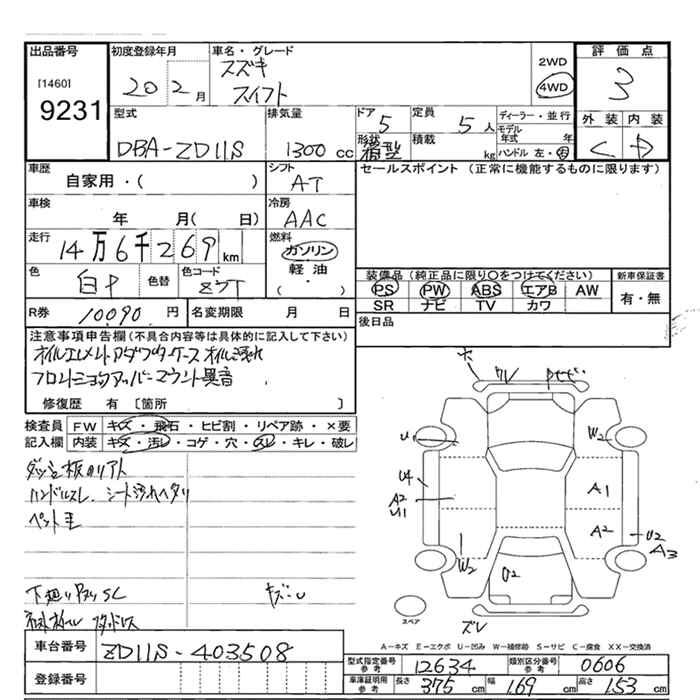 出品番号
[1460]
9231
初度登録年月
20 2月
車名・グレード
スズキ
スイフト
2WD
4WD
評価点
3
外装 内装
C D
型式
DBA-ZD11S
排気量
1300cc
ドア
5
形状
箱型
定員
5人
積載
kg
ディーラー・並行
モデル年式 年
ハンドル 左・右
車歴
自家用・( )
シフト
AT
セールスポイント (正常に機能するものに限ります)
車検
年 月( 日)
冷房
AAC
走行
14万6千269km
燃料
ガソリン
軽油
( ・ )
色
白
色替
色コード
装備品 (純正品に限り○をつけてください)
PS PW ABS エアB AW
SR ナビ TV カワ
新車保証書
有・無
R券
10090円
名変期限 月 日
後日品
注意事項申告欄(不具合内容等は具体的に記入して下さい)
オイルエレメントアダプタケースオイル漏れ
フロントショックアッパーマウント異音
修復歴 有 〔箇所 〕
検査員記入欄
FW キズ・飛石・ヒビ割・リペア跡・×要
内装 キズ・汚レ・コゲ・穴・スレ・キレ・破レ
ハンドルスレ、シート汚れヘタリ
ペット毛
下廻りサビSC
キズ
U1
W2
U4
A2
U1
A1
A2
U2
A3
W2
O2
スペア
ズレ
A-キズ E-エクボ U-凹み W-補修跡 S-サビ C-腐食 XX-交換済
車台番号
ZD11S-403508
登録番号
型式指定番号 参考
12634
類別区分番号 参考
0606
車庫証明用 参考
長さ 375cm 幅 169cm 高さ 153cm